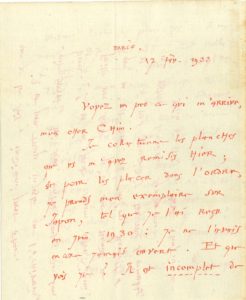 PARIS.
17 fév. 1933
Voyez un peu ce qui m'arrive,
mon cher Chim.
Je collationne les planches
que vous m'avez remises hier,
et pour les placer dans l'ordre,
je prends mon exemplaire sur
Japon, tel que je l'ai reçu
en Juin 1930 : je ne l'avais
encore jamais ouvert. Et que
vois-je ? Il est incomplet de